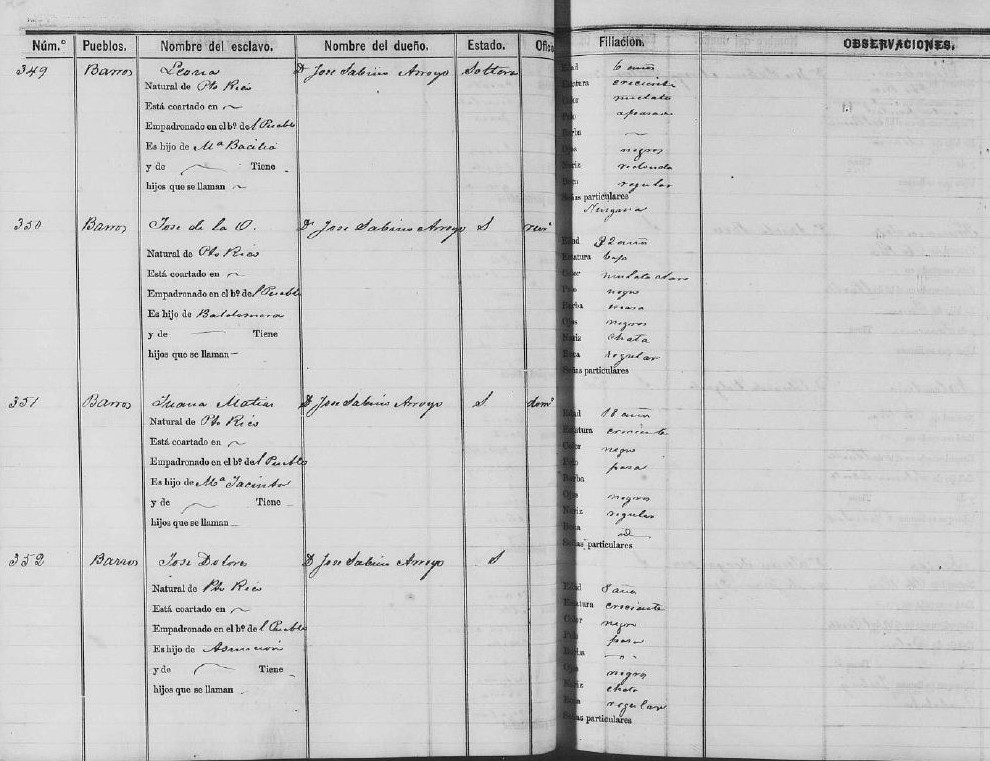 Núm.° Pueblos. Nombre del esclavo. Nombre del dueño. Estado. Ofic Filiacion. OBSERVACIONES.
349 Barros Leona Dⁿ Jose Sabino Arroyo Soltera
Natural de Pto Rico
Está coartado en ~
Empadronado en el bº de l Pueblo
Es hijo de Mª Bacilia
y de — Tiene -
hijos que se llaman ~
Edad 6 años
Estatura creciente
Color mulato
Pelo
Barba ~
Ojos negros
Nariz redonda
Boca regular
Señas particulares
Ninguna
350 Barros Jose de la O. Dⁿ Jose Sabino Arroyo S
Natural de Pto Rico
Está coartado en ~
Empadronado en el bº de l Pueblo
Es hijo de Baldomera
y de — Tiene
hijos que se llaman -
Edad 32 años
Estatura bajo
Color mulato claro
Pelo negro
Barba escasa
Ojos negros
Nariz chata
Boca regular
Señas particulares
351 Barros Juana Matias Dⁿ Jose Sabino Arroyo S domª
Natural de Pto Rico
Está coartado en ~
Empadronado en el bº de l Pueblo
Es hijo de Mª Jacinta
y de — Tiene -
hijos que se llaman -
Edad 18 años
Estatura creciente
Color negro
Pelo pasa
Barba
Ojos negros
Nariz regular
Boca id
Señas particulares
352 Barros Jose Dolores D Jose Sabino Arroyo S
Natural de Pto Rico
Está coartado en ~
Empadronado en el bº de l Pueblo
Es hijo de Asuncion
y de — Tiene -
hijos que se llaman -
Edad 8 años
Estatura creciente
Color negro
Pelo pasa
Barba — " -
Ojos negros
Nariz chata
Boca regular
Señas particulares